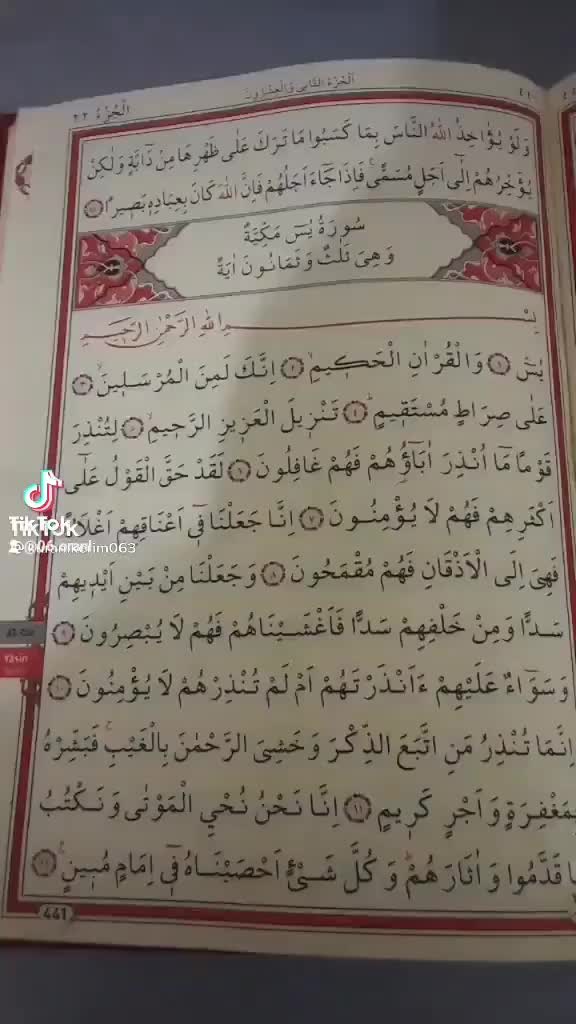 اَلْجُزْءُ الثَّانِي وَالْعِشْرُونَ
اَلْجُزْءُ ٢٢
وَلَوْ يُؤَاخِذُ اللّٰهُ النَّاسَ بِمَا كَسَبُوا مَا تَرَكَ عَلٰى ظَهْرِهَا مِنْ دَٓابَّةٍ وَلٰكِنْ
يُؤَخِّرُهُمْ اِلٰٓى اَجَلٍ مُسَمًّىۚ فَاِذَا جَٓاءَ اَجَلُهُمْ فَاِنَّ اللّٰهَ كَانَ بِعِبَادِهٖ بَصٖيرًا ﴿٤٥﴾
سُورَةُ يٰسٓ مَكِّيَّةٌ
وَهِىَ ثَلٰثٌ وَثَمَانُونَ اٰيَةً
بِسْــــمِ اللّٰهِ الرَّحْمٰنِ الرَّحٖيمِ
يٰسٓ ﴿١﴾ وَالْقُرْاٰنِ الْحَكٖيمِۙ ﴿٢﴾ اِنَّكَ لَمِنَ الْمُرْسَلٖينَۙ ﴿٣﴾
عَلٰى صِرَاطٍ مُسْتَقٖيمٍؕ ﴿٤﴾ تَنْزٖيلَ الْعَزٖيزِ الرَّحٖيمِۙ ﴿٥﴾ لِتُنْذِرَ
قَوْمًا مَٓا اُنْذِرَ اٰبَٓاؤُهُمْ فَهُمْ غَافِلُونَ ﴿٦﴾ لَقَدْ حَقَّ الْقَوْلُ عَلٰٓى
اَكْثَرِهِمْ فَهُمْ لَا يُؤْمِنُونَ ﴿٧﴾ اِنَّا جَعَلْنَا فٖٓى اَعْنَاقِهِمْ اَغْلَالًا
فَهِىَ اِلَى الْاَذْقَانِ فَهُمْ مُقْمَحُونَ ﴿٨﴾ وَجَعَلْنَا مِنْ بَيْنِ اَيْدٖيهِمْ
سَدًّا وَمِنْ خَلْفِهِمْ سَدًّا فَاَغْشَيْنَاهُمْ فَهُمْ لَا يُبْصِرُونَ ﴿٩﴾
وَسَوَٓاءٌ عَلَيْهِمْ ءَاَنْذَرْتَهُمْ اَمْ لَمْ تُنْذِرْهُمْ لَا يُؤْمِنُونَ ﴿١٠﴾
اِنَّمَا تُنْذِرُ مَنِ اتَّبَعَ الذِّكْرَ وَخَشِىَ الرَّحْمٰنَ بِالْغَيْبِۚ فَبَشِّرْهُ
بِمَغْفِرَةٍ وَاَجْرٍ كَرٖيمٍ ﴿١١﴾ اِنَّا نَحْنُ نُحْيِ الْمَوْتٰى وَنَكْتُبُ
مَا قَدَّمُوا وَاٰثَارَهُمْؕ وَكُلَّ شَىْءٍ اَحْصَيْنَاهُ فٖٓى اِمَامٍ مُبٖينٍ ﴿١٢﴾
441
TikTok